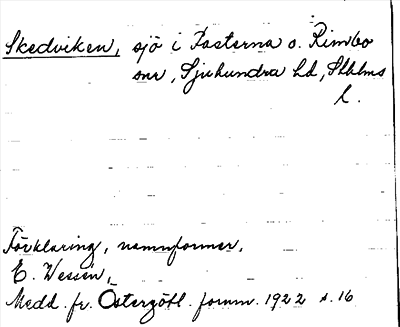 Skedviken, sjö i Fasterna o. Rimbo
snr, Sjuhundra hd, Sthlms
l.
Förklaring, namnformer,
E. Wessén,
Medd. fr. Östergötl. fornm. 1922 s. 16